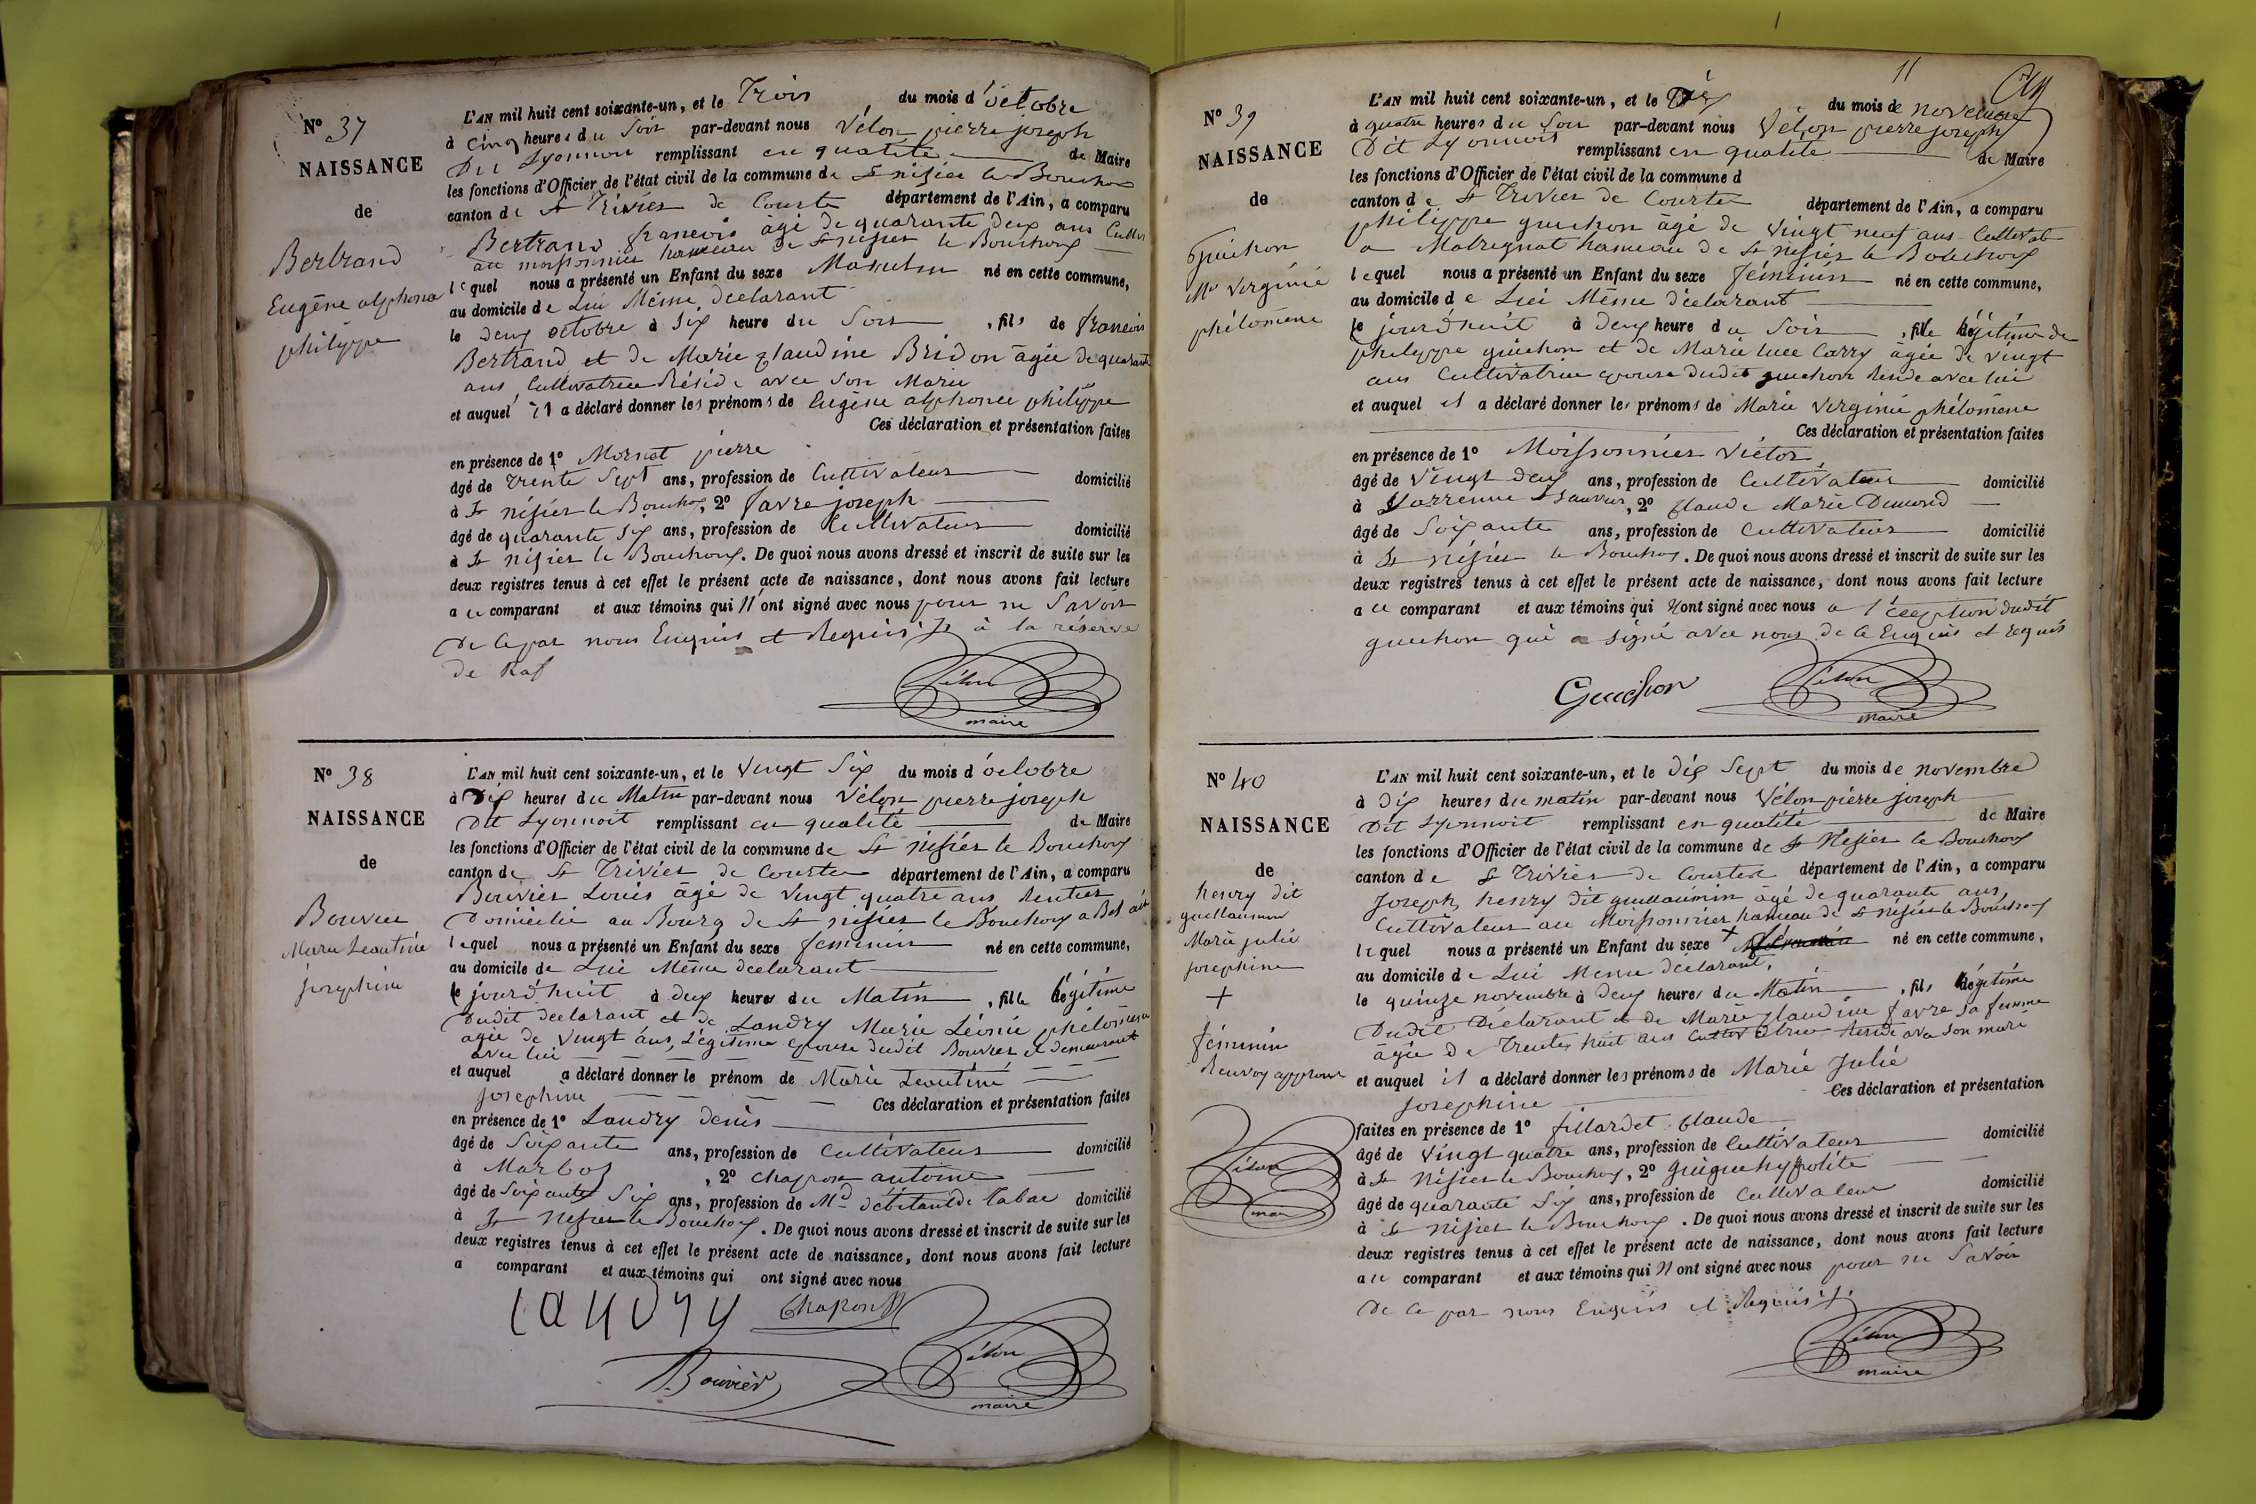 N° 37
NAISSANCE
de
Bertrand
Eugène alphonse
philippe
L'AN mil huit cent soixante-un, et le Trois du mois d'octobre
à cinq heures du Soir par-devant nous Vélon pierre joseph
Dit Lyonnoit remplissant en qualité de Maire
les fonctions d'Officier de l'état civil de la commune de St nisier le Bouchoux
canton de St Trivier de Courte département de l'Ain, a comparu
Bertrand francois âgé de quarante deux ans Cultiv
au moissonnier hameau de St nisier le Bouchoux
lequel nous a présenté un Enfant du sexe Masculin né en cette commune,
au domicile de Lui Même déclarant
le deux octobre à Six heure du Soir, fils de francois
Bertrand et de Marie Claudine Bridon âgée de quarante
ans, Cultivatrice Réside avec Son Marie
et auquel il a déclaré donner les prénoms de Eugène alphonse philippe
Ces déclaration et présentation faites
en présence de 1° Mornat pierre
âgé de trente Sept ans, profession de Cultivateur domicilié
à St nisier le Bouchoux, 2° favre joseph
âgé de quarante six ans, profession de Cultivateur domicilié
à St nisier le Bouchoux. De quoi nous avons dressé et inscrit de suite sur les
deux registres tenus à cet effet le présent acte de naissance, dont nous avons fait lecture
a ce comparant et aux témoins qui n'ont signé avec nous pour ne Savoir
De ce par nous Enquis et Requis à la réserve
de
Vélon
maire
N° 38
NAISSANCE
de
Bouvier
Marie Leontine
josephine
L'AN mil huit cent soixante-un, et le Vingt Six du mois d'octobre
à Dix heures du Matin par-devant nous Vélon pierre joseph
Dit Lyonnoit remplissant en qualité de Maire
les fonctions d'Officier de l'état civil de la commune de St nisier le Bouchoux
canton de St Trivier de Courte département de l'Ain, a comparu
Bouvier Louis âgé de Vingt quatre ans Rentier
Domicilié au Bourg de St nisier le Bouchoux
lequel nous a présenté un Enfant du sexe feminin né en cette commune,
au domicile de Lui Même déclarant
le jourd'huit à deux heures du Matin, fille légitime
Dudit declarant et de Landry Marie Léonie phélomène
agée de Vingt ans, Légitime epouse dudit Bouvier et demeurant
avec lui
et auquel a déclaré donner le prénom de Marie Leontine
Josephine Ces déclaration et présentation faites
en présence de 1° Landry denis
âgé de Soixante ans, profession de Cultivateur domicilié
à Marboz, 2° Chapon antoine
âgé de Soixante Six ans, profession de Md débitant de Tabac domicilié
à St nisier le Bouchoux. De quoi nous avons dressé et inscrit de suite sur les
deux registres tenus à cet effet le présent acte de naissance, dont nous avons fait lecture
a comparant et aux témoins qui ont signé avec nous
Landry Chapon
Bouvier
Vélon
maire
11
N° 39
NAISSANCE
de
Guichon
Me Virginie
phélomène
L'AN mil huit cent soixante-un, et le Dix du mois de novembre
à quatre heures du Soir par-devant nous Vélon pierre joseph
Dit Lyonnoit remplissant en qualité de Maire
les fonctions d'Officier de l'état civil de la commune d
canton de St Trivier de Courte département de l'Ain, a comparu
philippe guichon âgé de Vingt neuf ans Cultivat
a Malzegnat hameau de St nisier le Bouchoux
lequel nous a présenté un Enfant du sexe féminin né en cette commune,
au domicile de Lui Même déclarant
le jourd'huit à deux heure du Soir, fille légitime de
philippe guichon et de Marie luce Carry âgée de Vingt
ans Cultivatrice epouse dudit guichon Reside avec lui
et auquel il a déclaré donner les prénoms de Marie Virginie phélomène
Ces déclaration et présentation faites
en présence de 1° Moissonnier Victor
âgé de Vingt deux ans, profession de Cultivateur domicilié
à Varrenne St Sauveur, 2° Claude Marie Dumond
âgé de Soixante ans, profession de Cultivateur domicilié
à St nisier le Bouchoux. De quoi nous avons dressé et inscrit de suite sur les
deux registres tenus à cet effet le présent acte de naissance, dont nous avons fait lecture
a ce comparant et aux témoins qui n'ont signé avec nous a l'éception dudit
guichon qui a signé avec nous de ce Enquis et requis
Guichon
Vélon
maire
N° 40
NAISSANCE
de
henry dit
guillaumin
Marie julie
josephine
+
féminin
Renvoy approuvé
Vélon
maire
L'AN mil huit cent soixante-un, et le dix Sept du mois de novembre
à Dix heures du matin par-devant nous Vélon pierre joseph
Dit Lyonnoit remplissant en qualité de Maire
les fonctions d'Officier de l'état civil de la commune de St Nisier le Bouchoux
canton de St Trivier de Courte département de l'Ain, a comparu
Joseph henry dit guillaumin âgé de quarante ans,
Cultivateur au Moissonnier hameau de St nisier le Bouchoux
lequel nous a présenté un Enfant du sexe + né en cette commune,
au domicile de Lui Meme déclarant,
le quinze novembre à deux heures du Matin, fils légitime
Dudit Déclarant et de Marie Claudine favre Sa femme
âgée de Trente huit ans Cultivatrice Reside avec Son mari
et auquel il a déclaré donner les prénoms de Marie Julie
Josephine Ces déclaration et présentation
faites en présence de 1° fillardet Claude
âgé de Vingt quatre ans, profession de Cultivateur domicilié
à St Nisier le Bouchoux, 2° guigue hyppolite
âgé de quarante Six ans, profession de Cultivateur domicilié
à St nisier le Bouchoux. De quoi nous avons dressé et inscrit de suite sur les
deux registres tenus à cet effet le présent acte de naissance, dont nous avons fait lecture
a ce comparant et aux témoins qui n'ont signé avec nous pour ne Savoir
De ce par nous Enquis et Requis
Vélon
maire